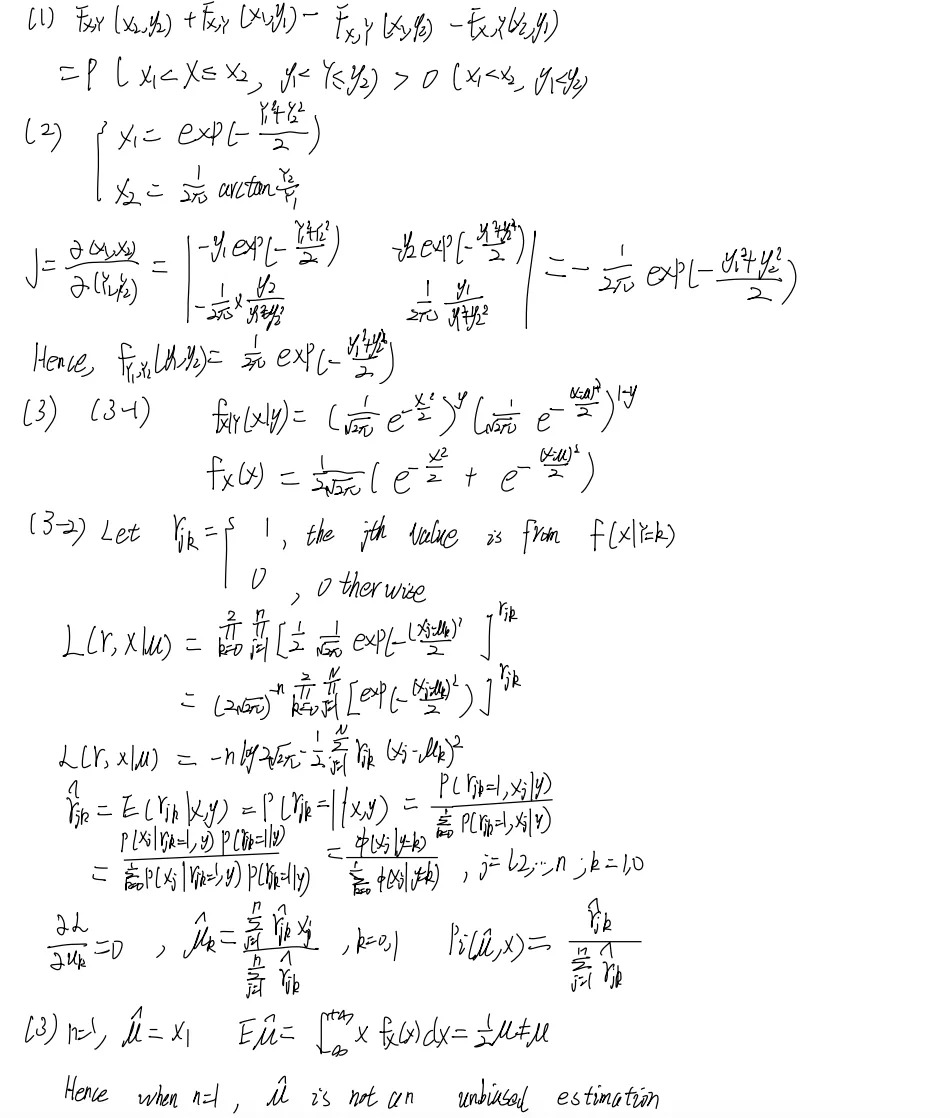 (1) F_{X,Y}(x₂,y₂) + F_{X,Y}(x₁,y₁) − F_{X,Y}(x₁,y₂) − F_{X,Y}(x₂,y₁)
= P(x₁<X≤x₂, y₁<Y≤y₂) > 0 (x₁<x₂, y₁<y₂)
(2) { X₁ = exp(−(Y₁²+Y₂²)/2)
X₂ = 1/2π arctan Y₂/Y₁
J = ∂(X₁,X₂)/∂(Y₁,Y₂) = | −y₁exp(−(Y₁²+Y₂²)/2)  −y₂exp(−(y₁²+y₂²)/2) ; −1/2π × y₂/(y₁²+y₂²)  1/2π y₁/(y₁²+y₂²) | = −1/2π exp(−(y₁²+y₂²)/2)
Hence, f_{Y₁,Y₂}(y₁,y₂) = 1/2π exp(−(y₁²+y₂²)/2)
(3) (3-1) f_{X|Y}(x|y) = (1/√2π e^{−x²/2})^y (1/√2π e^{−(x−μ)²/2})^{1−y}
f_X(x) = 1/2√2π (e^{−x²/2} + e^{−(x−μ)²/2})
(3-2) Let r_{jk} = { 1, the jth value is from f(x|Y=k)
0, otherwise
L(r, x|μ) = ∏_{k=0}^{2} ∏_{j=1}^{n} [1/2 1/√2π exp(−(x_j−μ_k)²/2]^{r_{jk}}
= (2√2π)^{−n} ∏_{k=0}^{2} ∏_{j=1}^{N} [exp(−(x_j−μ_k)²/2)]^{r_{jk}}
L(r, x|μ) = −n log 2√2π − 1/2 ∑_{j=1}^{N} r_{jk}(x_j−μ_k)²
r̂_{jk} = E(r_{jk}|x,y) = P(r_{jk}=1|x,y) = P(r_{jk}=1, x_j|y) / ∑_{k=0}^{1} P(r_{jk}=1, x_j|y)
= P(x_j|r_{jk}=1,y) P(r_{jk}=1|y) / ∑_{k=0}^{1} P(x_j|r_{jk}=1,y) P(r_{jk}=1|y) = φ(x_j|y=k) / ∑_{k=0}^{1} φ(x_j|y=k), j=1,2,…,n; k=1,0
∂L/∂μ_k = 0, μ̂_k = ∑_{j=1}^{n} r̂_{jk} x_j / ∑_{j=1}^{n} r̂_{jk}, k=0,1  P_i(μ̂,x) = r̂_{jk} / ∑_{j=1}^{n} r̂_{jk}
(3) n=1, μ̂ = x₁  Eμ̂ = ∫_{−∞}^{+∞} x f_X(x)dx = 1/2 μ ≠ μ
Hence when n=1, μ̂ is not an unbiased estimation